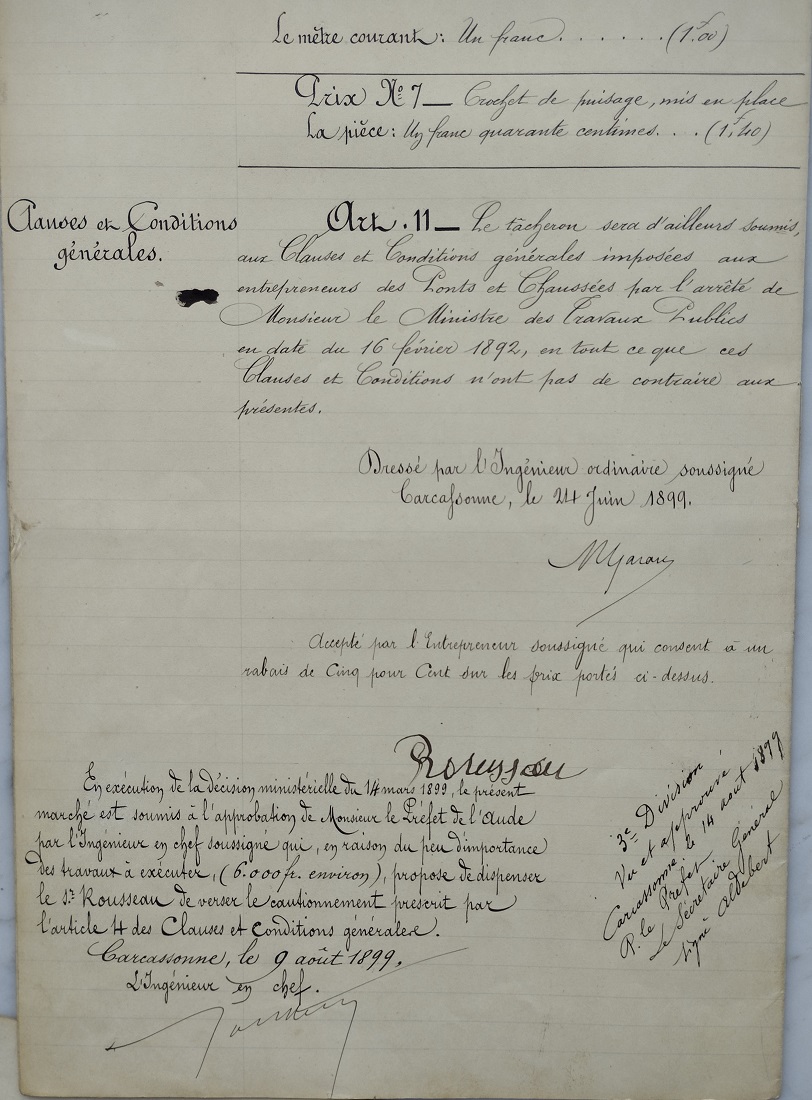 Le mètre courant : Un franc . . . . . . (1f.00)
Prix No 7 — Crochet de puisage, mis en place
La pièce : Un franc quarante centimes. . . (1f.40)
Clauses et Conditions
générales.
Art. 11 — Le tâcheron sera d'ailleurs soumis,
aux Clauses et Conditions générales imposées aux
entrepreneurs des Ponts et Chaussées par l'arrêté de
Monsieur le Ministre des Travaux Publics
en date du 16 février 1892, en tout ce que ces
Clauses et Conditions n'ont pas de contraire aux
présentes.
Dressé par l'Ingénieur ordinaire soussigné
Carcassonne, le 24 Juin 1899.
Accepté par l'Entrepreneur soussigné qui consent à un
rabais de Cinq pour Cent sur les prix portés ci-dessus.
Rousseau
En exécution de la décision ministérielle du 14 mars 1899, le présent
marché est soumis à l'approbation de Monsieur le Préfet de l'Aude
par l'Ingénieur en chef soussigné qui, en raison du peu d'importance
des travaux à exécuter, (6.000 fr. environ), propose de dispenser
le sr. Rousseau de verser le cautionnement prescrit par
l'article 4 des Clauses et Conditions générales.
Carcassonne, le 9 août 1899.
L'Ingénieur en chef.
3e Division
Vu et approuvé
Carcassonne, le 14 août 1899
P. le Préfet
Le Secrétaire Général
signé Aldebert